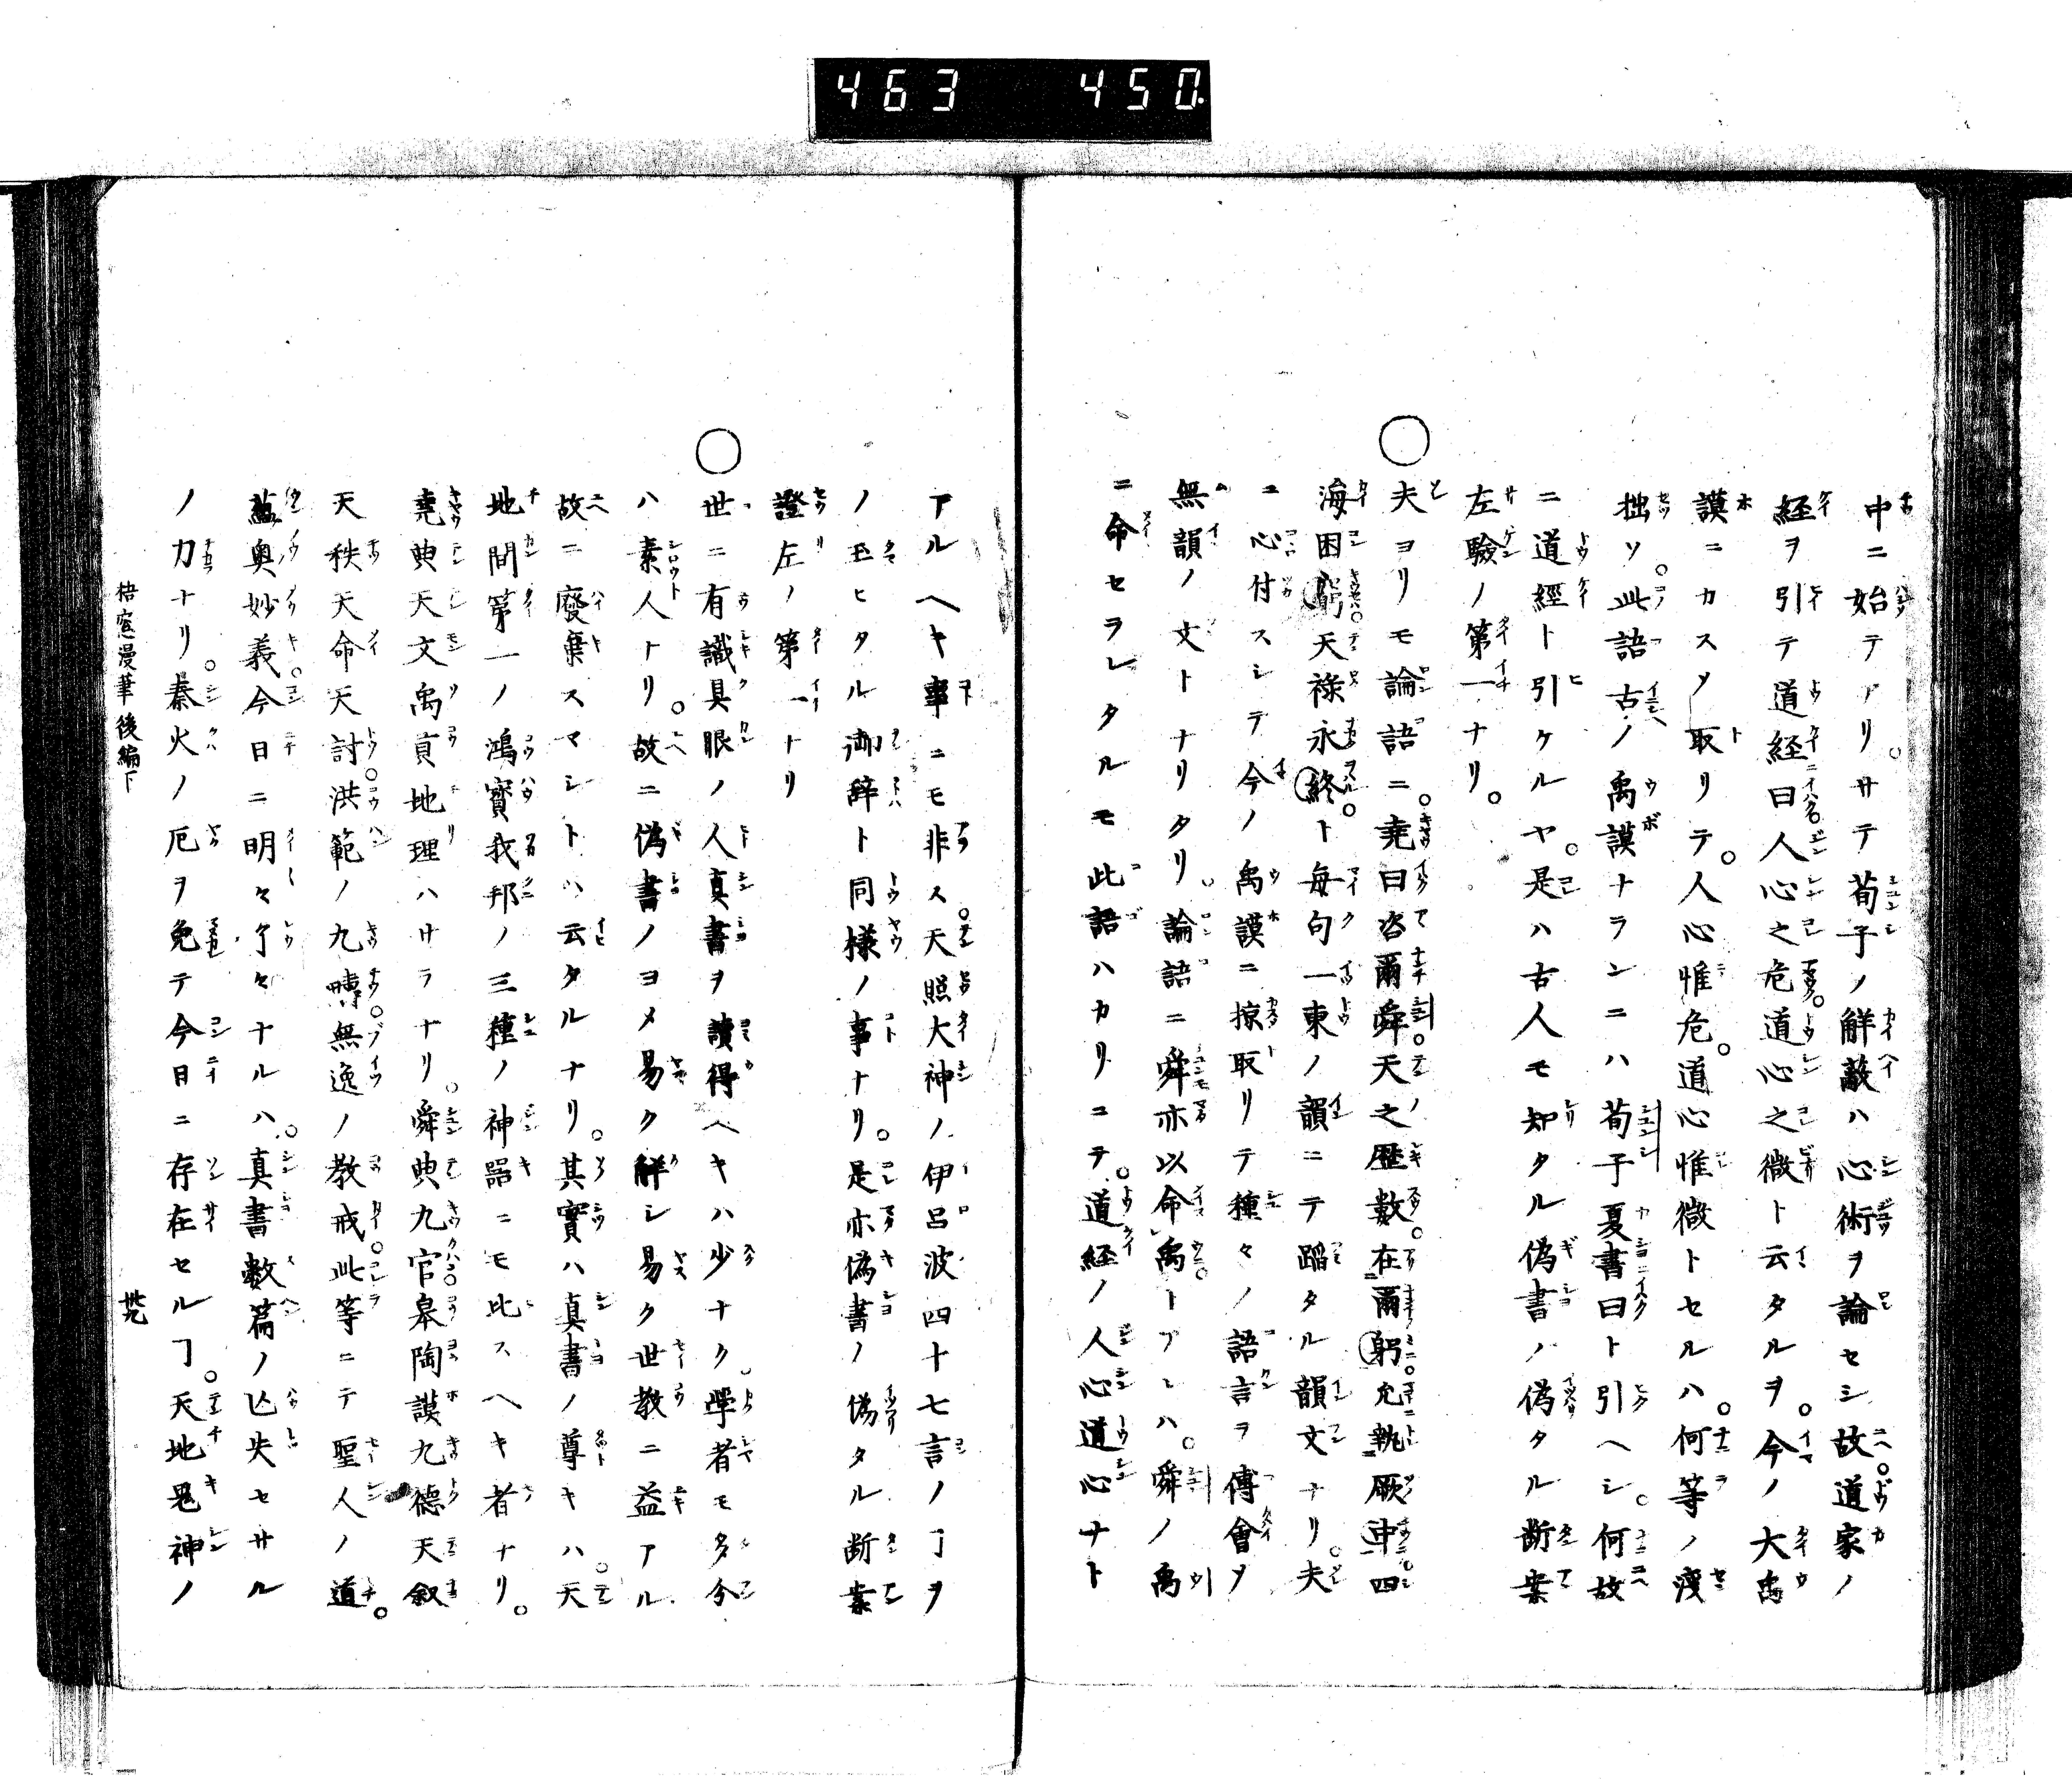 463 450
中ニ始テアリ。サテ荀子ノ觧蔽ハ心術ヲ論セシ故。道家ノ
経ヲ引テ道経曰人心之危道心之微ト云タルヲ。今ノ大禹
謨ニカスメ取リテ。人心惟危。道心惟微トセルハ。何等ノ
拙ソ。此語古ノ禹謨ナランニハ荀子夏書曰ト引ヘシ。何故
ニ道經ト引ケルヤ。是ハ古人モ知タル偽書ノ偽タル断案
左驗ノ第一ナリ。
○夫ヨリモ論語ニ。堯曰咨爾舜。天之歴數。在爾躬。允執厥中。四
海困窮。天祿永終。ト毎句一東ノ韻ニテ蹈タル韻文ナリ。夫
ニ心付スシテ今ノ禹謨ニ掠取リテ種々ノ語言ヲ傅會メ
無韻ノ文トナリタリ。論語ニ舜亦以命禹トアレハ。舜ノ禹
ニ命セラレタルモ此語ハカリニテ。道経ノ人心道心ナト
アルヘキ事ニモ非ス。天照大神ノ伊呂波四十七言ノヿヲ
ノ玉ヒタル御辞ト同様ノ事ナリ。是亦偽書ノ偽タル断案
證左ノ第一ナリ
○世ニ有識具眼ノ人真書ヲ讀得ヘキハ少ナク。學者モ多分
ハ素人ナリ。故ニ偽書ノヨメ易ク觧シ易ク世教ニ益アル
故ニ廢棄スマシトハ云タルナリ。其實ハ真書ノ尊キハ。天
地間第一ノ鴻寳我邦ノ三種ノ神器ニモ比スヘキ者ナリ。
堯典天文禹貢地理ハサラナリ。舜典九官皋陶謨九德天叙
天秩天命天討。洪範ノ九疇。無逸ノ教戒。此等ニテ聖人ノ道。
蘊奥妙義。今日ニ明々了々ナルハ。真書數篇ノ亾失セサル
ノ力ナリ。秦火ノ厄ヲ免テ今日ニ存在セルヿ。天地鬼神ノ
梧窓漫筆後編下
卅九